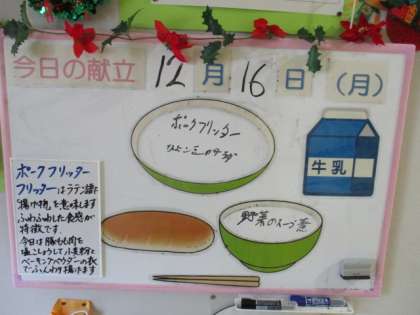 今日の献立 12月16日(月)
ポークフリッター
牛乳
野菜のスープ煮
ポークフリッター
フリッターはラテン語で
「揚げ物」を意味します
ふわふわした食感が
特徴です。
今日は豚もも肉を
塩こしょうして小麦粉と
ベーキングパウダーの衣
でふんわり揚げます